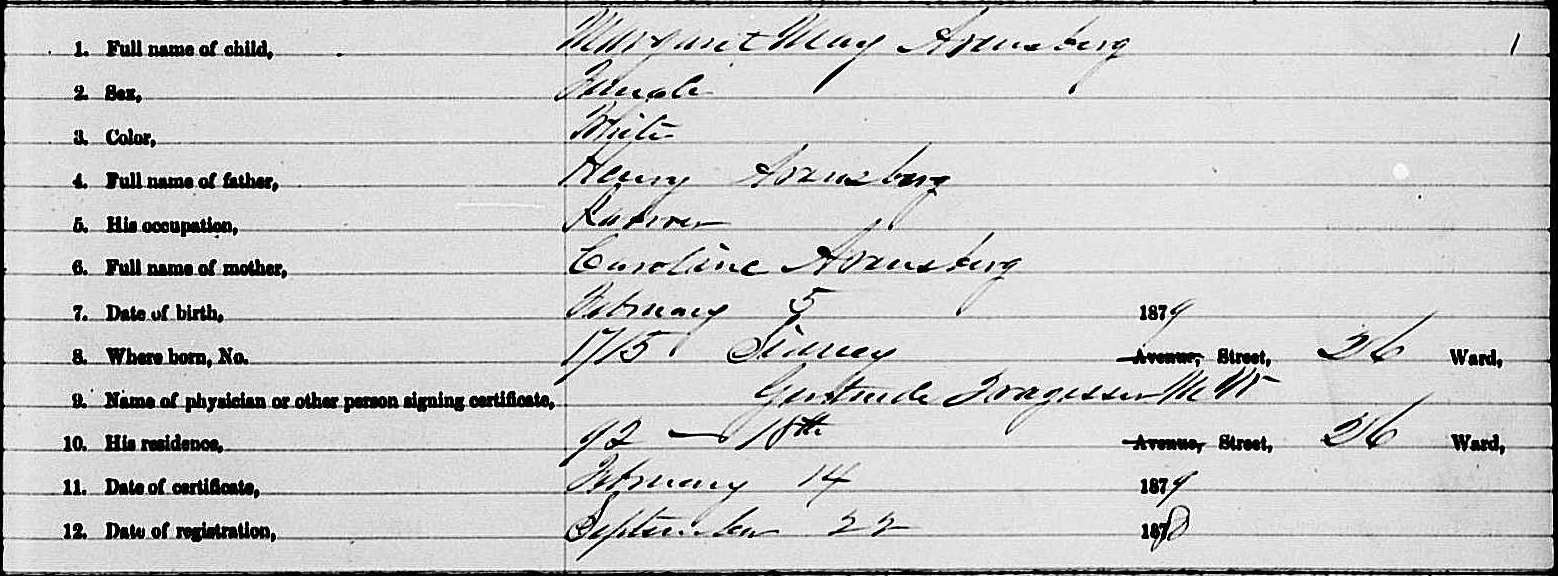 1. Full name of child, Margaret May Arensberg 1
2. Sex, Female
3. Color, White
4. Full name of father, Henry Arensberg
5. His occupation,
6. Full name of mother, Caroline Arensberg
7. Date of birth, February 5 1879
8. Where born, No. 1715 Sidney Avenue, Street, 26 Ward,
9. Name of physician or other person signing certificate, Gertrude
10. His residence, 92 — 18th Avenue, Street, 26 Ward,
11. Date of certificate, February 14 1879
12. Date of registration, September 22 1878